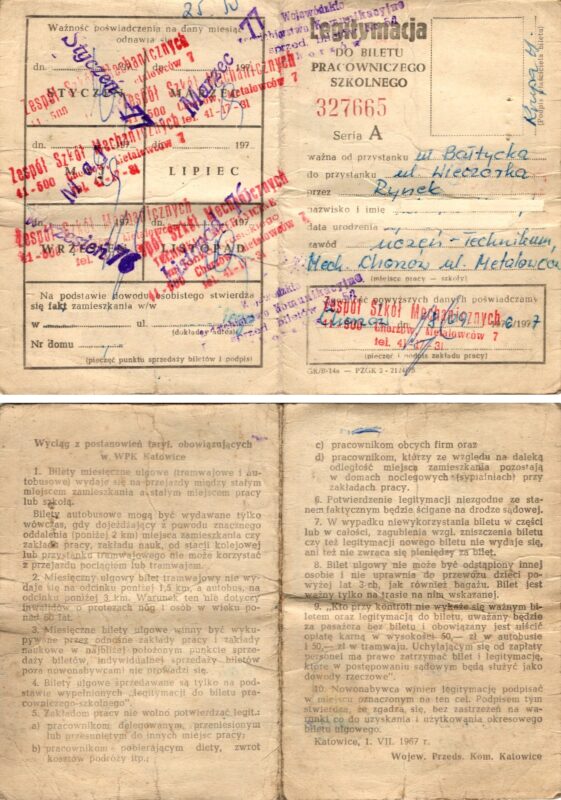 25.
Ważność poświadczenia na dany miesiąc
odnawia się
dn. 197
dn. 197
STYCZEŃ
MARZEC
Styczeń 77
Marzec 77
Zespół Szkół Mechanicznych
41-500 Chorzów, Metalowców 7
tel. 41-17-31
dn. 197
MAJ
LIPIEC
Zespół Szkół Mechanicznych
41-500 Chorzów, Metalowców 7
tel. 41-17-31
WRZESIEŃ
LISTOPAD
Na podstawie dowodu osobistego stwierdza
się fakt zamieszkania w/w
w ul.
(dokładny adres)
Nr domu
(pieczęć punktu sprzedaży biletów i podpis)
Legitymacja
DO BILETU
PRACOWNICZEGO
SZKOLNEGO
327665
Seria A
(Podpis właściciela biletu)
ważna od przystanku ul Bałtycka
do przystanku ul. Wieczorka
przez Rynek
nazwisko i imię
data urodzenia
zawód uczeń - Technikum
Mech. Chorzów ul. Metalowców
(miejsce pracy - szkoły)
powyższych danych poświadczamy
Zespół Szkół Mechanicznych
41-500 Chorzów, Metalowców 7
tel. 41-17-31
(pieczęć i podpis zakładu pracy)
Wyciąg z postanowień taryf. obowiązujących
w WPK Katowice
1. Bilety miesięczne ulgowe (tramwajowe i au-
tobusowe) wydaje się na przejazdy między stałym
miejscem zamieszkania a stałym miejscem pracy
lub szkołą.
Bilety autobusowe mogą być wydawane tylko
wówczas, gdy dojeżdżający z powodu znacznego
oddalenia (poniżej 2 km) miejsca zamieszkania czy
zakładu pracy, zakładu nauk, od stacji kolejowej
lub przystanku tramwajowego nie może korzystać
z przejazdu pociągiem lub tramwajem.
2. Miesięcznych ulgowy bilet tramwajowy nie wy-
daje się na odcinku poniżej 1,5 km, a autobus, na
odcinku poniżej 3 km. Warunek ten nie dotyczy
inwalidów o protezach nóg i osób w wieku po-
nad 60 lat.
3. Miesięczne bilety ulgowe winny być wyku-
pywane przez odnośne zakłady pracy i zakłady
naukowe w najbliżej położonym punkcie sprze-
daży biletów, indywidualnej sprzedaży biletów
poza nowonabywcami nie prowadzi się.
4. Bilety ulgowe sprzedawane są tylko na pod-
stawie wypełnionych „legitymacji do biletu pra-
cowniczego-szkolnego".
5. Zakładom pracy nie wolno potwierdzać legit.:
a) pracownikom delegowanym, przeniesionym
lub przesuniętym do innych miejsc pracy;
b) pracownikom pobierającym diety, zwrot
kosztów podróży itp.;
c) pracownikom obcych firm oraz
d) pracownikom, którzy ze względu na daleką
odległość miejsca zamieszkania pozostają
w domach noclegowych (sypialniach) przy
zakładach pracy.
6. Potwierdzenie legitymacji niezgodne ze sta-
nem faktycznym będzie ścigane na drodze sądowej.
7. W wypadku niewykorzystania biletu w części
lub w całości, zagubienia wzgl. zniszczenia biletu
czy też legitymacji nowego biletu nie wydaje się,
ani też nie zwraca się pieniędzy za bilet.
8. Bilet ulgowy nie może być odstąpiony innej
osobie i nie uprawnia do przewozu dzieci po-
wyżej lat 3-ch, jak również bagażu. Bilet jest
ważny tylko na trasie na nim wskazanej.
9. „Kto przy kontroli nie wykaże się ważnym bi-
letem oraz legitymacją do biletu, uważany będzie
za pasażera bez biletu i obowiązany jest uiścić
opłatę karną w wysokości 50,— zł w autobusie
i 50,— zł w tramwaju. Uchylającym się od zapłaty
personel ma prawo zatrzymać bilet i legitymację,
które w postępowaniu sądowym będą służyć jako
dowody rzeczowe".
10. Nowonabywca winien legitymację podpisać
w miejscu oznaczonym na ten cel. Podpisem tym
stwierdza, że zgadza się, bez zastrzeżeń na wa-
runki co do uzyskania i użytkowania okresowego
biletu ulgowego.
Katowice, 1. VII. 1967 r.
Wojew. Przeds. Kom. Katowice